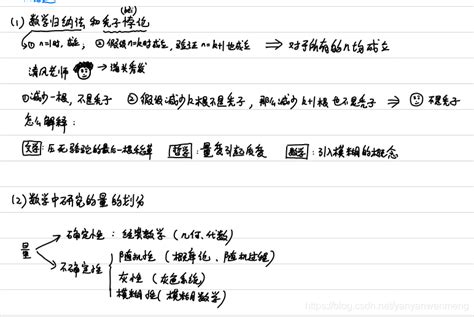 (1) 数学归纳法和秃子悖论
(谷)
① n=1时,成立, ② 假设n=k时成立,验证n=k+1也成立 ⇒ 对于所有的n均成立
清风老师 → 满头秀发
①减少一根,不是秃子 ②假设减少k根不是秃子,那么减少k+1根也不是秃子 ⇒ 不是秃子
怎么解释:
文学:压死骆驼的最后一根稻草 哲学:量变引起质变 数学:引入模糊的概念
(2) 数学中研究的量的划分
量
确定性:经典数学(几何、代数)
不确定性
随机性(概率论、随机过程)
灰性(灰色系统)
模糊性(模糊数学)
https://blog.csdn.net/yanyanwenmeng